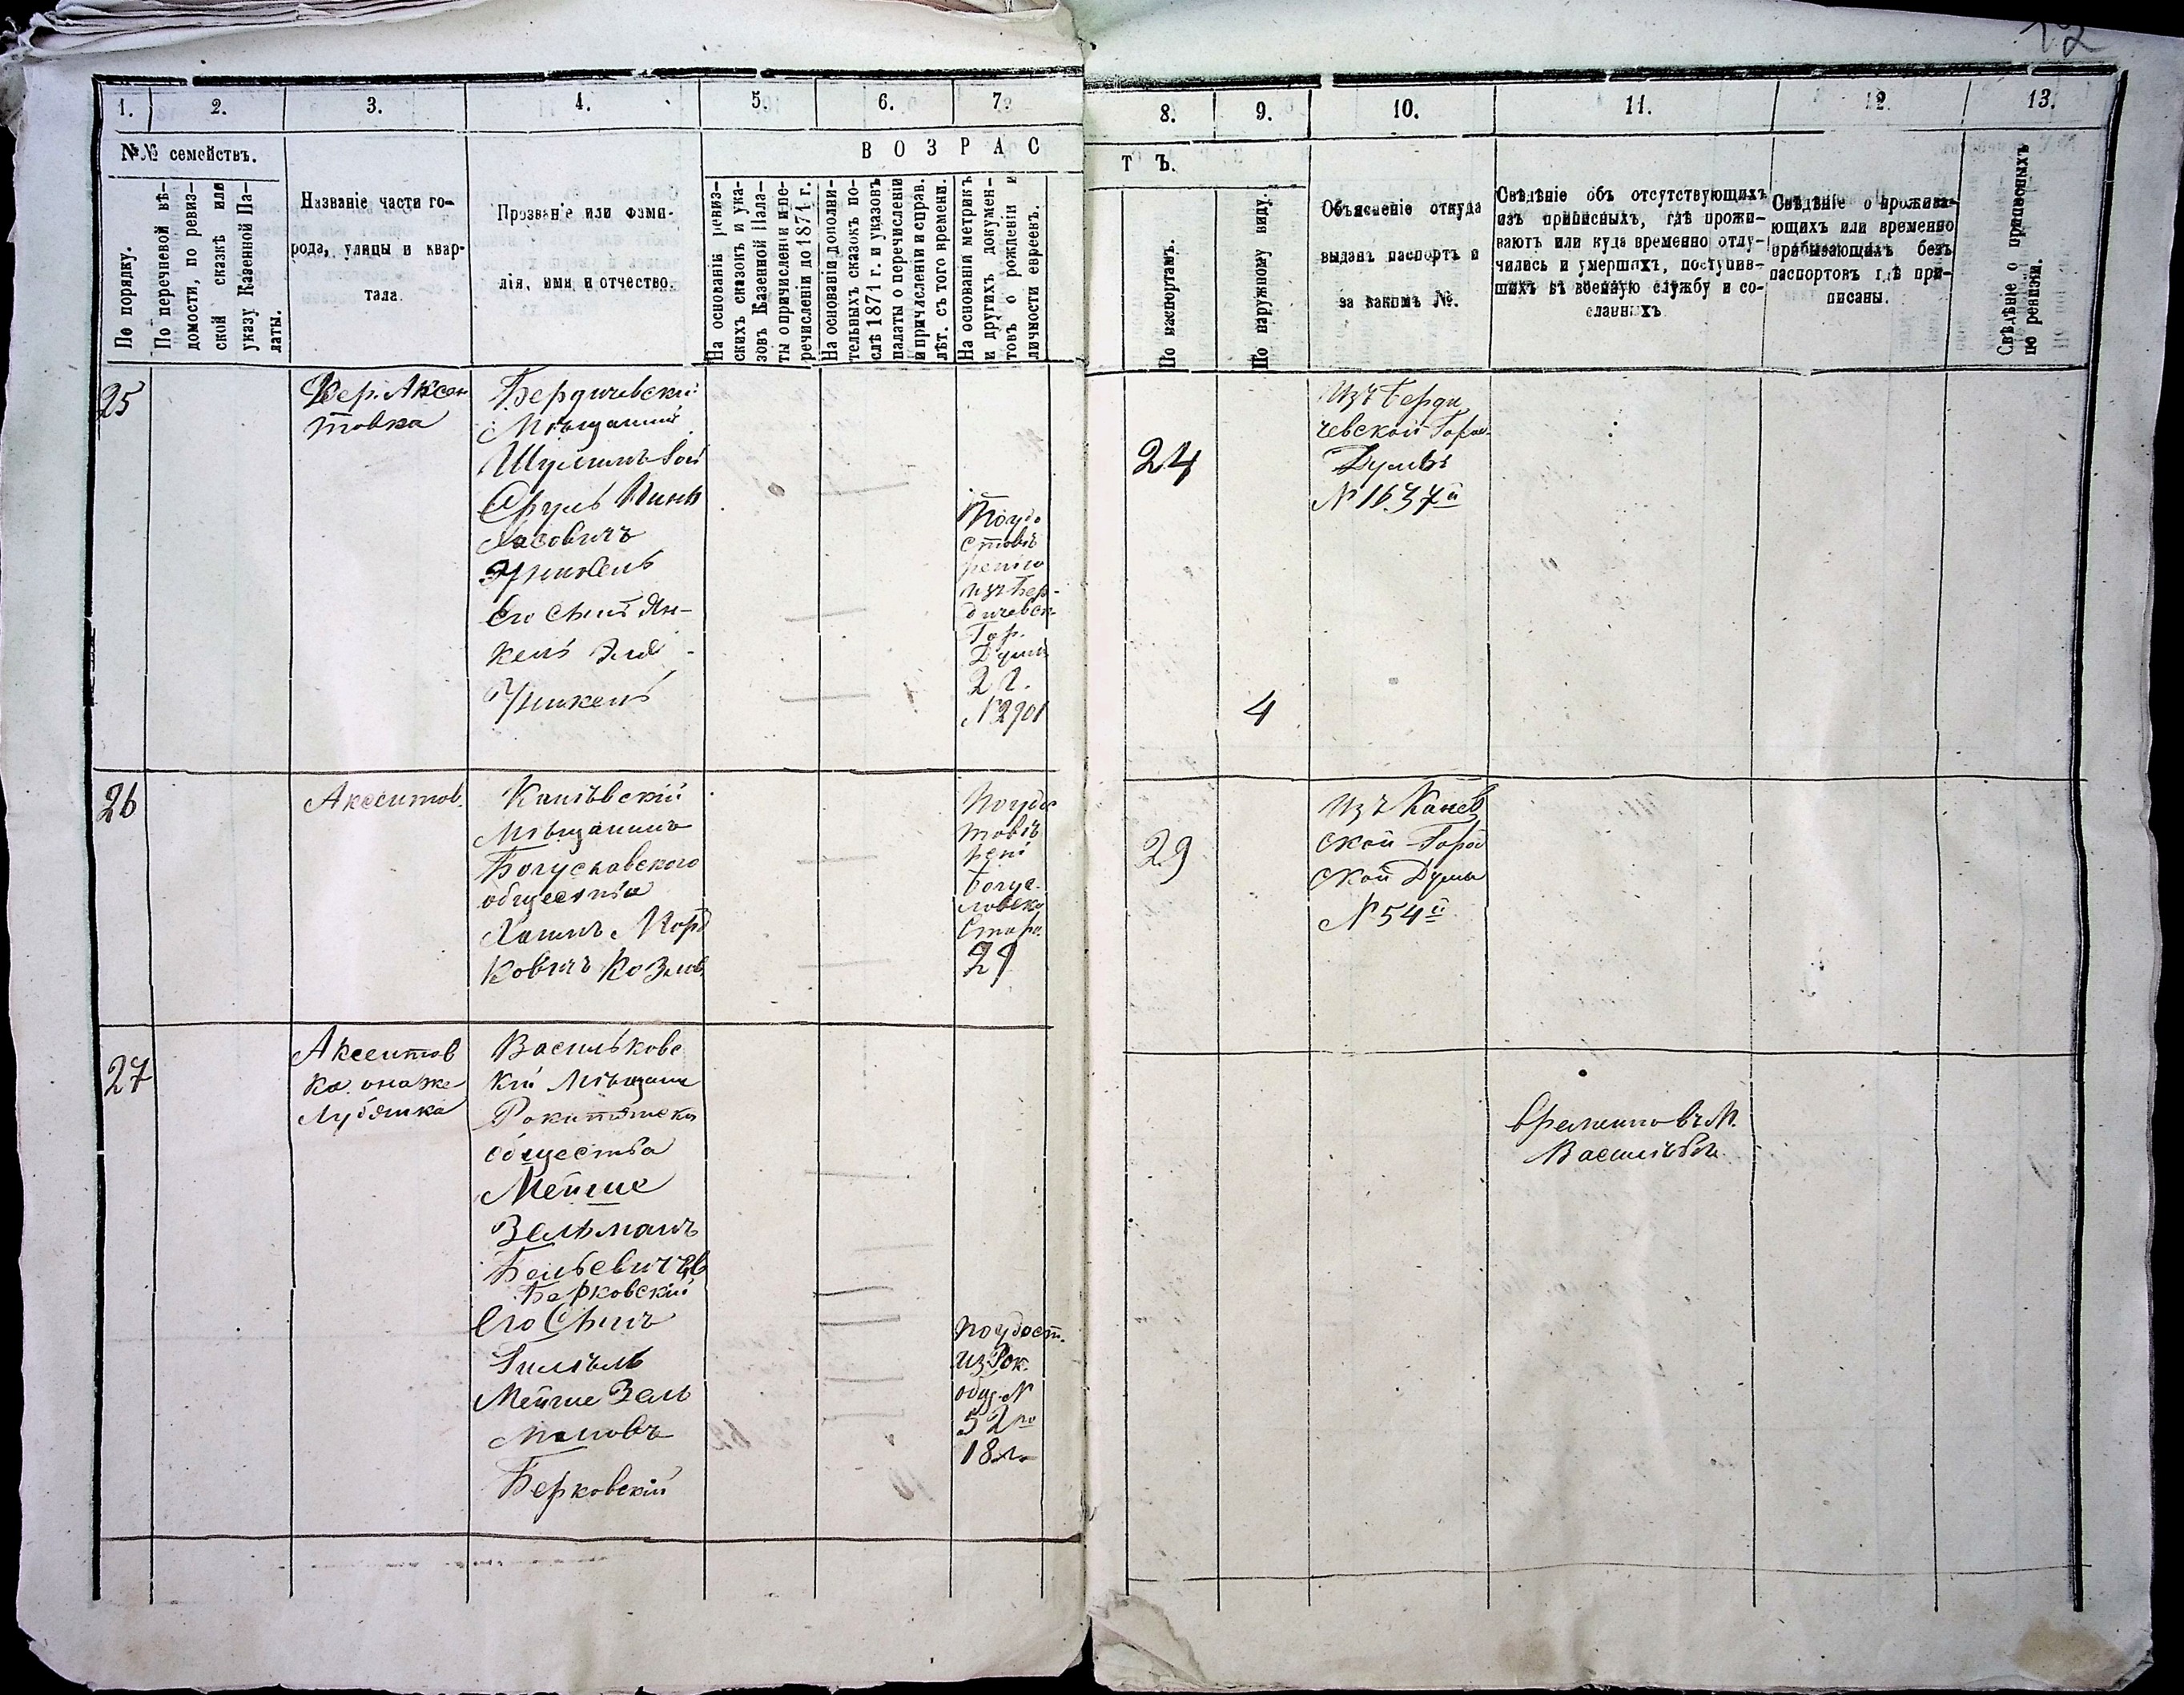 12
1.
2.
3.
4.
5.
6.
7.
8.
9.
10.
11.
12.
13.
№№ семействъ.
В О З Р А С
Т Ъ.
По порядку.
По перечневой вѣ-
домости, по ревиз-
ской сказкѣ или
указу Казенной Па-
латы.
Названіе части го-
рода, улицы и квар-
тала.
Прозваніе или фами-
лія, имя и отчество.
На основаніи ревиз-
скихъ сказокъ и ука-
зовъ Казенной Пала-
ты о причисленіи и пе-
речисленіи до 1871 г.
На основаніи дополни-
тельныхъ сказокъ по-
слѣ 1871 г. и указовъ
палаты о перечислени
и причисленіи и справ.
лѣт. съ того времени.
На основаніи метрикъ
и другихъ докумен-
товъ о рожденіи и
личности евреевъ.
По паспортамъ.
По наружному виду.
Объясненіе откуда
выданъ паспортъ и
за какимъ №.
Свѣдѣніе объ отсутствующихъ
изъ приписныхъ, гдѣ прожи-
ваютъ или куда временно отлу-
чились и умершихъ, поступив-
шихъ въ военную службу и со-
сланныхъ
Свѣдѣніе о прожива-
ющихъ или временно
прибывающихъ безъ
паспортовъ гдѣ при-
писаны.
Свѣдѣніе о приписныхъ
по ревизіи.
25
Дер. Аксен
товка
Бердичевскій
Мѣщанинъ
Сруль Пинь
хасовичъ
Его Сынъ Ян-
кель
Поудо
стовѣ
ренію
изъ Бер-
дичевск
Гор.
Думы
№ 2901
24
4
Изъ Берди
чевской Город.
Думы
№ 1637й
26
Аксентов.
Каневскій
Мѣщанинъ
Богуславского
общества
Хаимъ Морд
ковичъ Козлов
Поудос
товѣ
рені
Богус
лавско
Старо.
29
29
Изъ Канев
ской Город
ской Думы
№ 54й
27
Аксентов
ка она же
Лубянка
Васильковс
кій Мѣщани
Рокитянско
общества
Мейше
Зельманъ
Берковскій
Его Сынъ
Мейше Зель
мановъ
Берковскій
Поудост.
изъ Рок.
общ. №
52 по
18 л.
временно въ М.